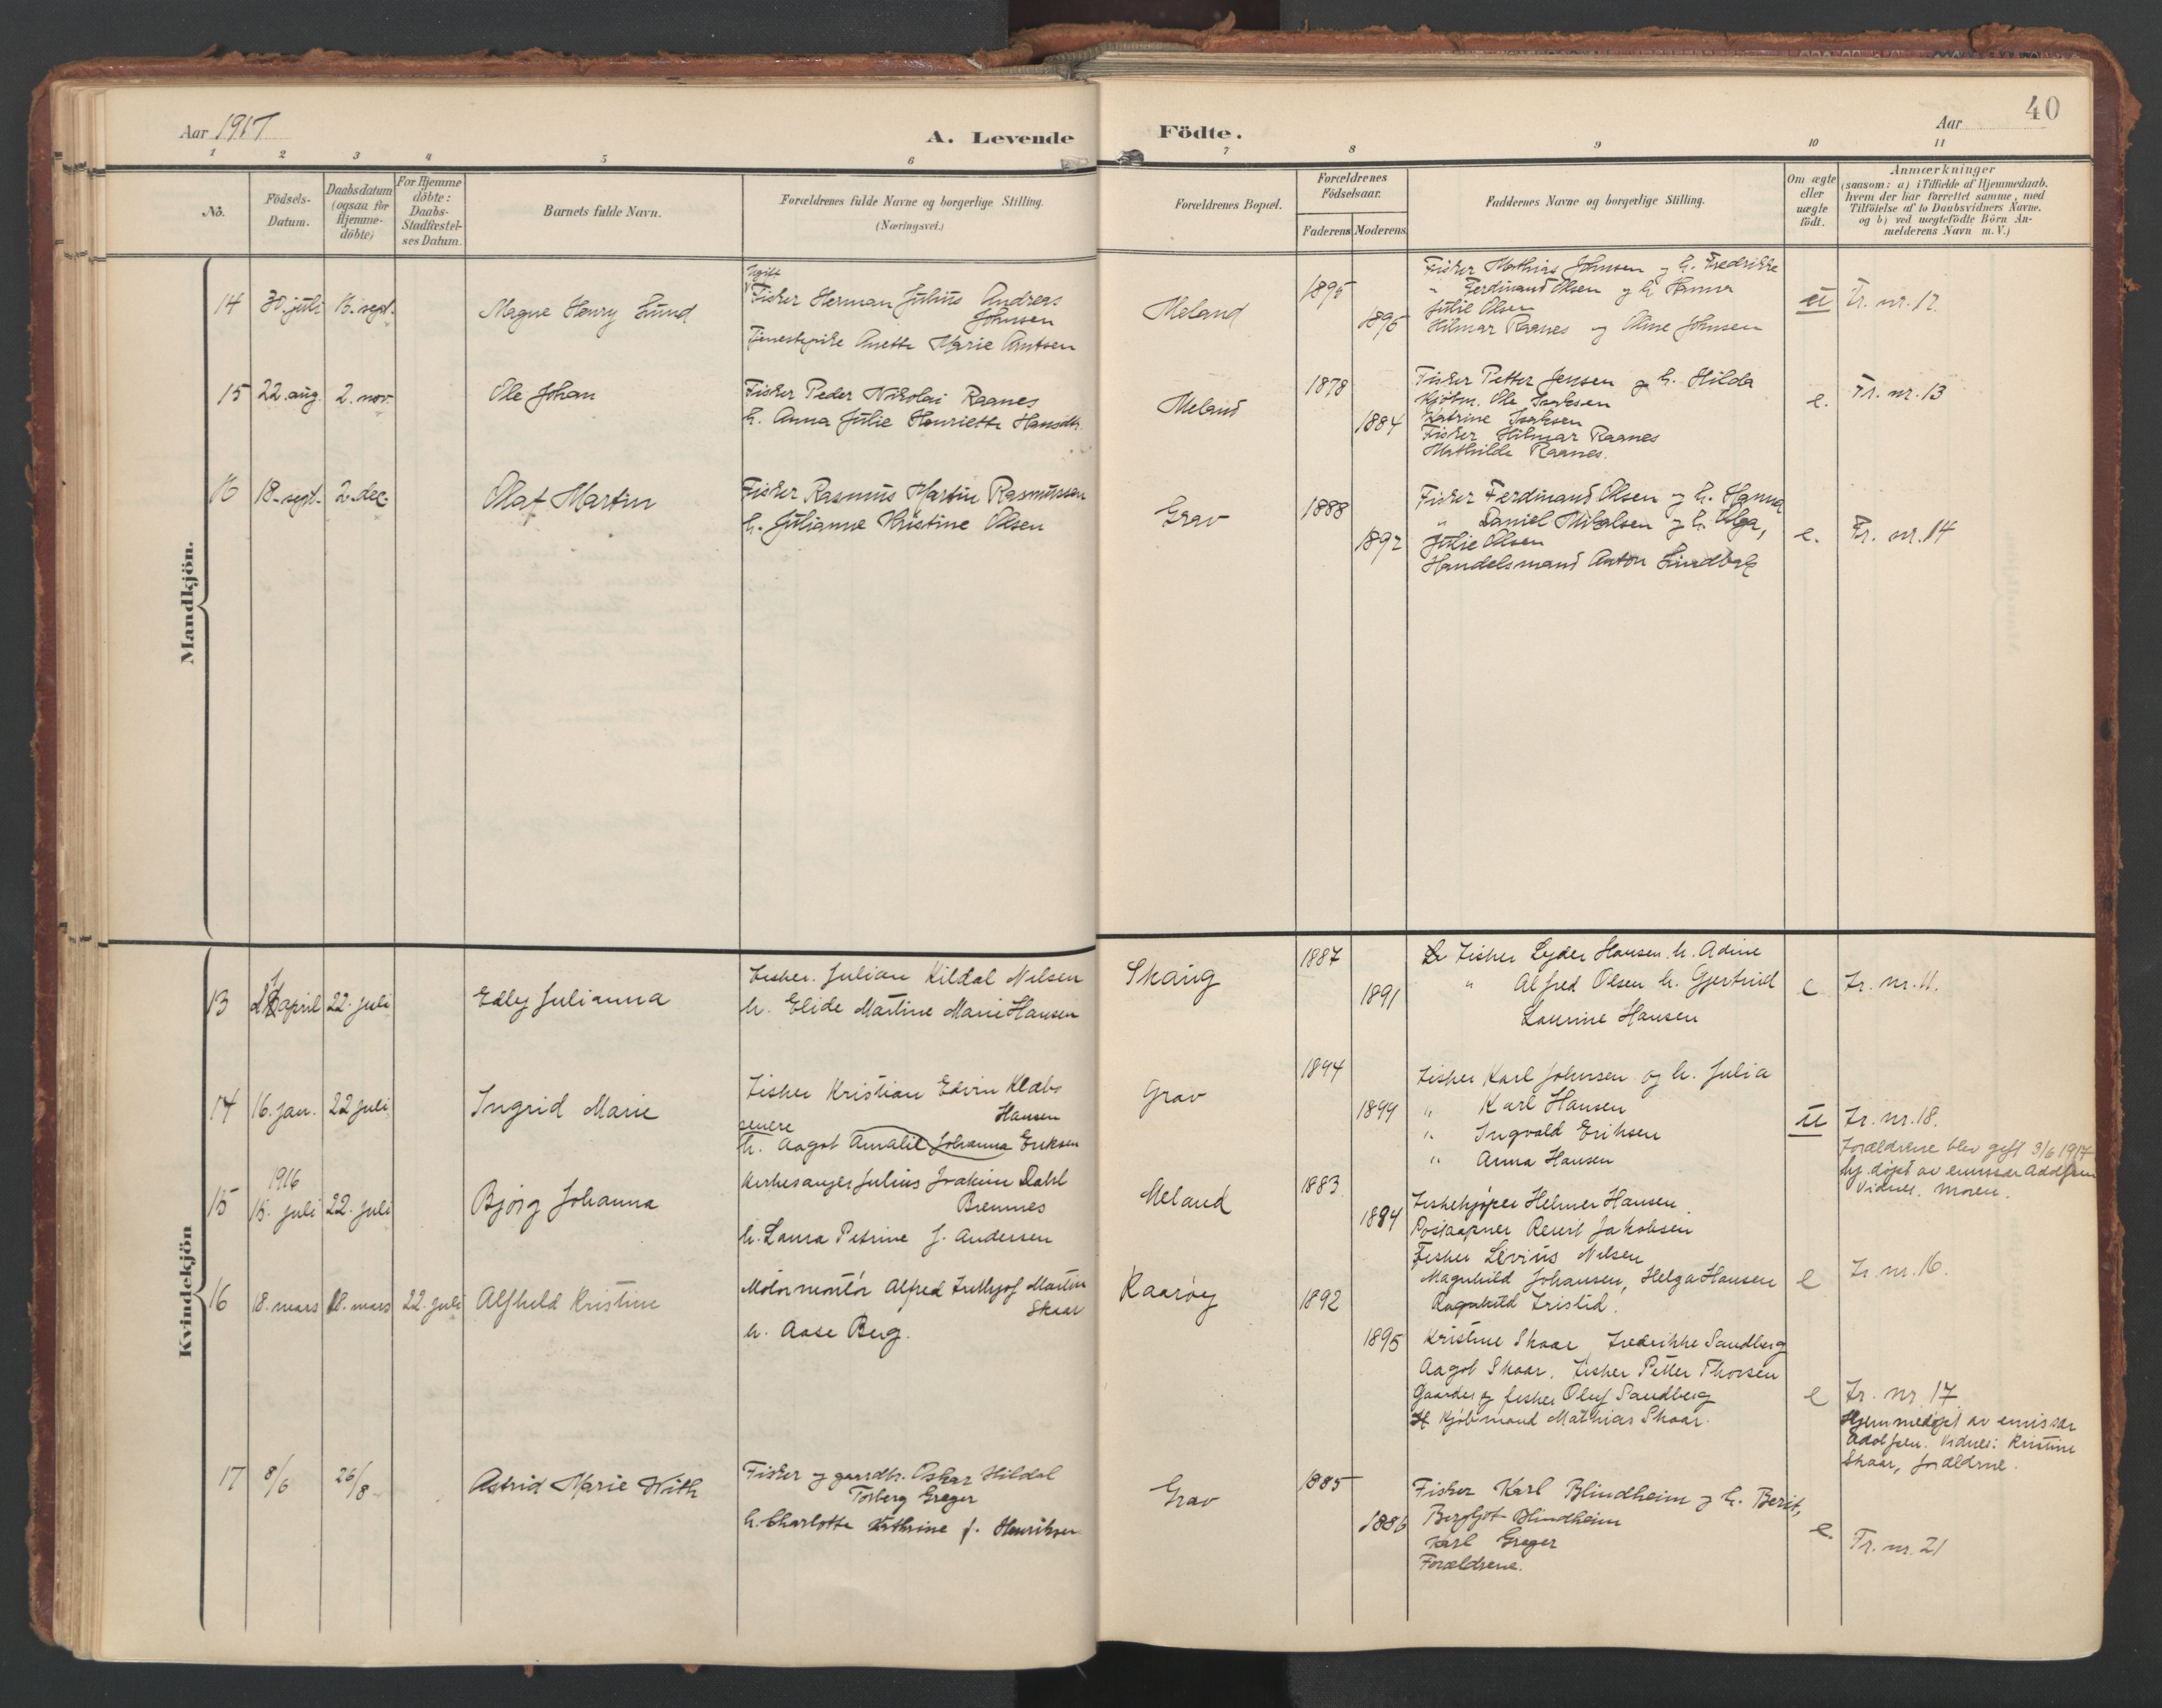 Aar 1917
A. Levende
Födte.
Aar
40
1 2 3 4 5 6 7 8 9 10 11
No.
Födsels-Datum.
Daabsdatum (ogsaa for Hjemme-döbte)
For Hjemme döbte: Daabs-Stadfæstel-ses Datum.
Barnets fulde Navn.
Forældrenes fulde Navne og borgerlige Stilling.
(Næringsvei.)
Forældrenes Bopæl.
Forældrenes Födselsaar.
Faderens Moderens
Faddernes Navne og borgerlige Stilling.
Om ægte eller uægte födt.
Anmærkninger
(saasom: a) i Tilfælde af Hjemmedaab,
hvem der har forrettet samme, med
Tilföielse af to Daabsvidners Navne,
og b) ved uegtefödte Börn An-
melderens Navn m. V.)
Mandkjön.
14 30. juli 16. sept. Magne Henry Lund
Ugift
Fisker Herman Julius Andreas
Johnsen
Tjenestepike Anette Marie Antsen
Meland
1895
1896
Fisker Mathias Johnsen og h. Fredrikke
" Ferdinand Olsen og h. Hanna
Julie Olsen
Hilmar Raanes og Oline Johnsen
u Fr. nr. 12.
15 22. aug. 2. nov. Ole Johan
Fisker Peder Nikolai Raanes
h. Anna Julie Henriette Hansdtr.
Meland
1878
1884
Fisker Petter Jensen og h. Hilda
Kjöbm. Ole Isaksen
Katrine Isaksen
Fisker Hilmar Raanes
Mathilde Raanes.
e. Fr. nr. 13
16 18. sept. 2. dec. Olaf Martin
Fisker Rasmus Martin Rasmussen
h. Julianne Kristine Olsen
Grav
1888
1892
Fisker Ferdinand Olsen og h. Hanna
" Daniel Mikalsen og h. Olga,
Julie Olsen
Handelsmand Anton Lindbak
e. Fr. nr. 14
Kvindekjön
13 april 22. juli Edly Julianna
Fisker. Julian Kildal Nilsen
h. Elide Martine Marie Hansen
Skaug
1887
1891
Fisker Lyder Hansen. h. Adine
" Alfred Olsen h. Gjertrud
Laurine Hansen
e Fr. nr. 11.
14 16. jan. 22 juli Ingrid Marie
Fisker Kristian Edvin Klæbo
Hansen
senere
h. Aagot Amalie Johanna Eriksen
Grav
1894
1899
Fisker Karl Johnsen og h. Julia
" Karl Hansen
" Ingvald Eriksen
" Anna Hansen
u Fr. nr. 18.
Forældrene blev gift 3/6 1917
hj. döpt av emissær Adolfsen
Vidner. Moren.
1916
15 15. juli 22. juli Bjørg Johanna
Kirkesanger Julius Joakim Dahl
Bremnes
h. Laura Petrine J. Andersen
Meland
1883
1884
Fiskekjöper Helmer Hansen.
Postaapner Reiert Jakobsen
Fisker Levius Nilsen
Magnhild Johansen, Helga Hansen
Ragnhild Fristid.
e Fr. nr. 16.
16 18. mars 18. mars 22. juli Alfhild Kristine
Motormontör Alfred Fritthjof Martin
Skaar
h. Aase Berg.
Kaarøy
1892
1895
Kristine Skaar, Fredrikke Sandberg
Aagot Skaar. Fisker Petter Thorsen
Gaardbr. og fisker Oluf Sandberg
Kjöbmand Mathias Skaar.
e Fr. nr. 17.
Hjemmedöpt av emissær
Adolfsen. Vidner: Kristine
Skaar, forældrene.
17 8/6 26/8 Astrid Marie With
Fisker og gaardbr. Oskar Hildal
Torberg Greger
h. Charlotte Kathrine f. Henriksen
Grav
1885
1886
Fisker Karl Blindheim og h. Berit,
Bergljot Blindheim
Karl Greger
Forældrene.
e. Fr. nr. 21